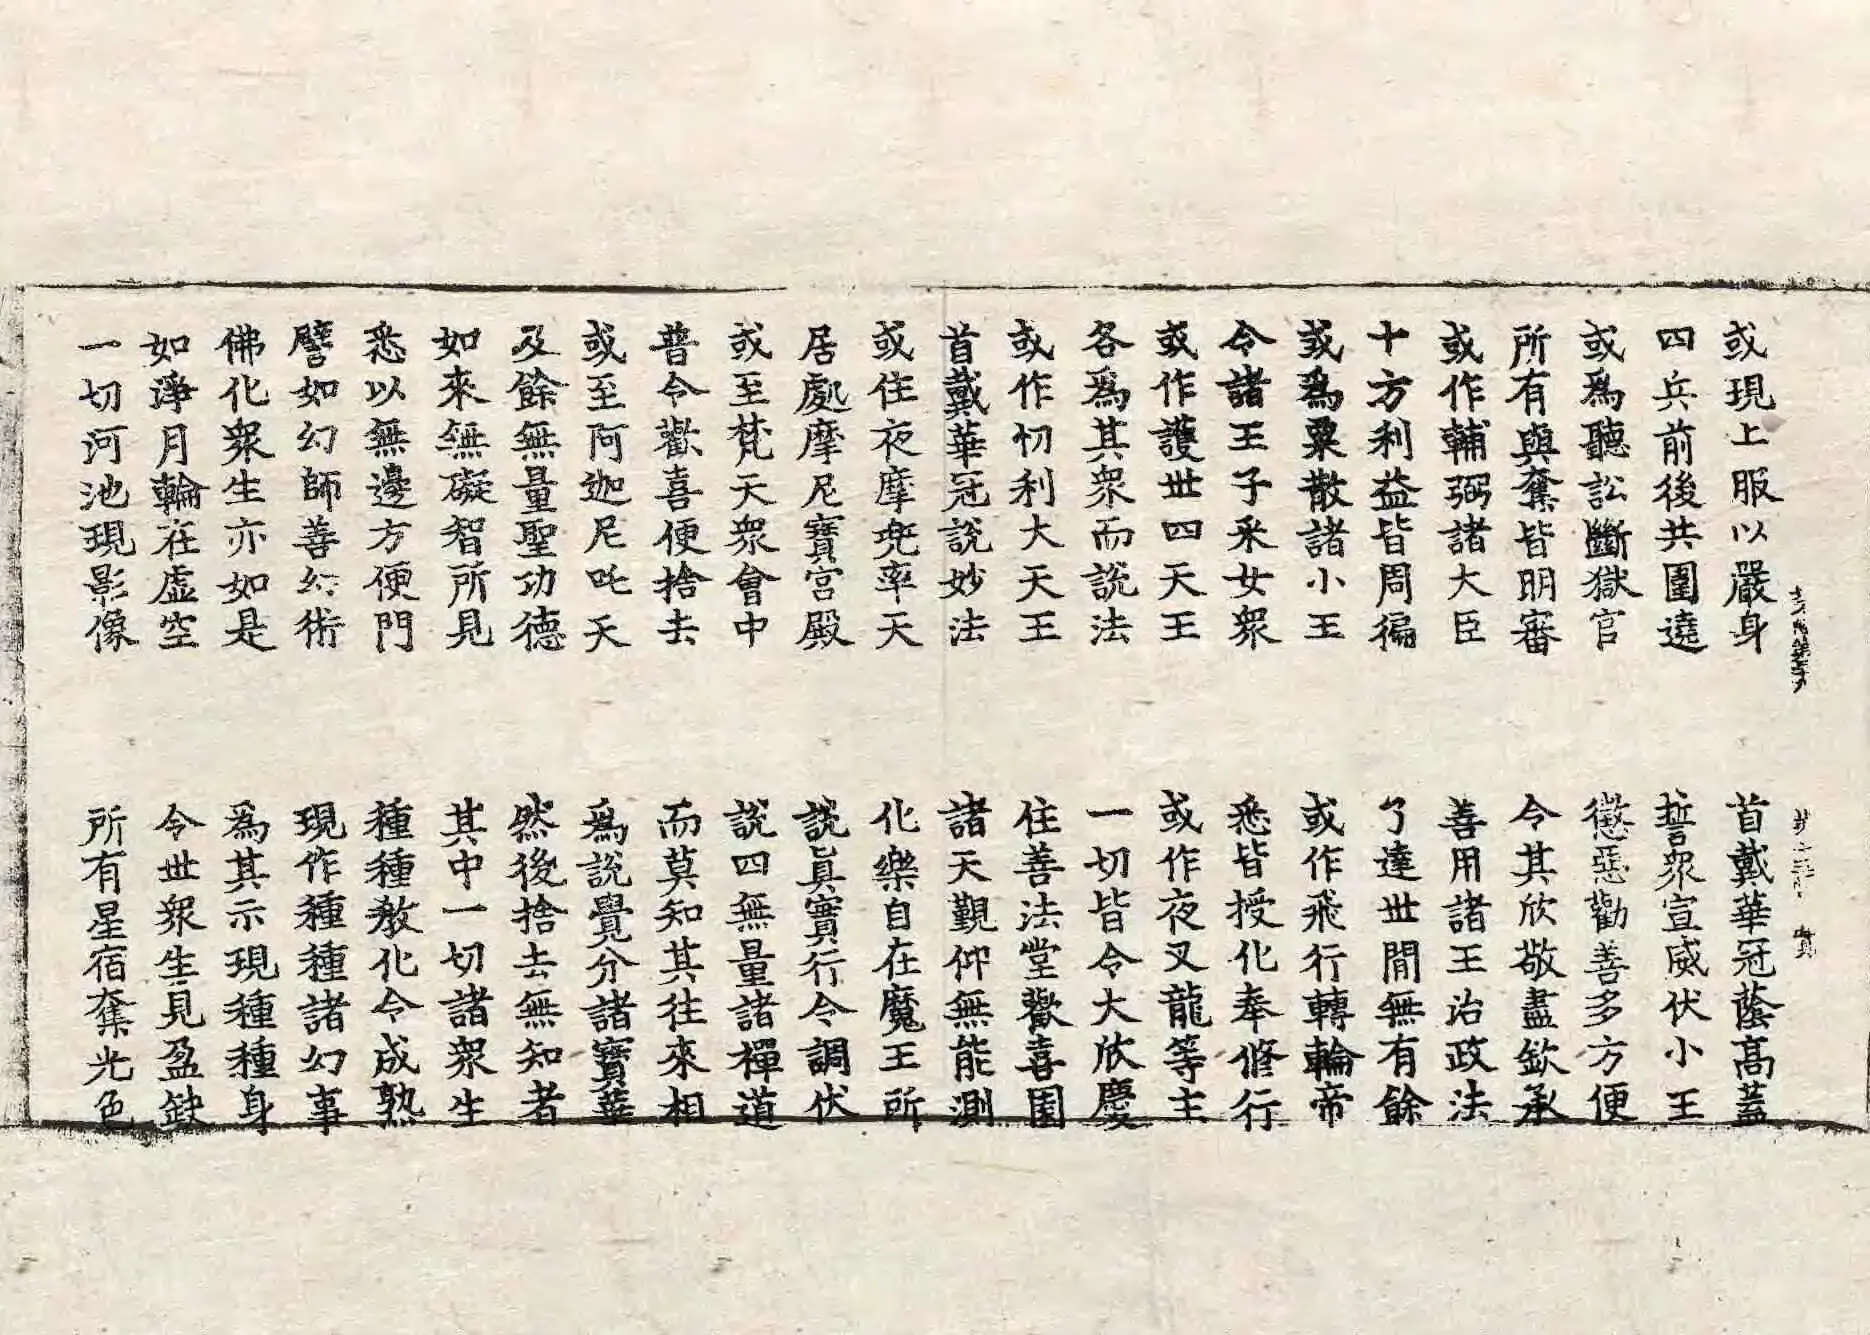 或現上服以嚴身　首戴華冠蔭高蓋
四兵前後共圍遶　誓衆宣威伏小王
或爲聽訟斷獄官　懲惡勸善多方便
所有與奪皆明審　令其欣敬盡欽承
或作輔弼諸大臣　善用諸王治政法
十方利益皆周徧　了達世間無有餘
或爲粟散諸小王　或作飛行轉輪帝
令諸王子采女衆　悉皆授化奉修行
或作護世四天王　或作夜叉龍等主
各爲其衆而說法　一切皆令大欣慶
或作忉利大天王　住善法堂歡喜園
首戴華冠說妙法　諸天覲仰無能測
或住夜摩兜率天　化樂自在魔王所
居處摩尼寶宮殿　說眞實行令調伏
或至梵天衆會中　說四無量諸禪道
普令歡喜便捨去　而莫知其往來相
或至阿迦尼吒天　爲說覺分諸寶華
及餘無量聖功德　然後捨去無知者
如來無礙智所見　其中一切諸衆生
悉以無邊方便門　種種教化令成熟
譬如幻師善幻術　現作種種諸幻事
佛化衆生亦如是　爲其示現種種身
如淨月輪在虛空　令世衆生見盈缺
一切河池現影像　所有星宿奪光色